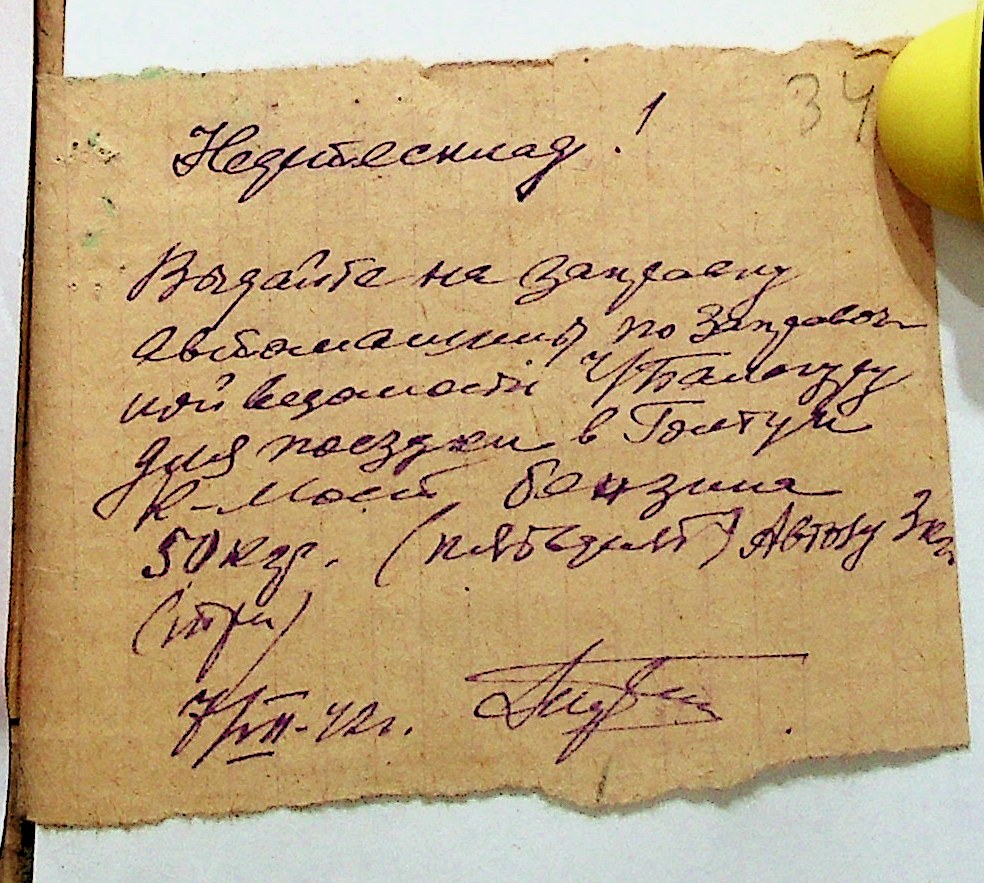 34
Нефтесклад!
Выдайте на заправку
автомашины по заправоч-
ной ведомости
для поездки в Голтув и
К-Мост бензина
50 кгр. (пятьдесят) Автолу 3 кг.
(три)
7/VII-42г.